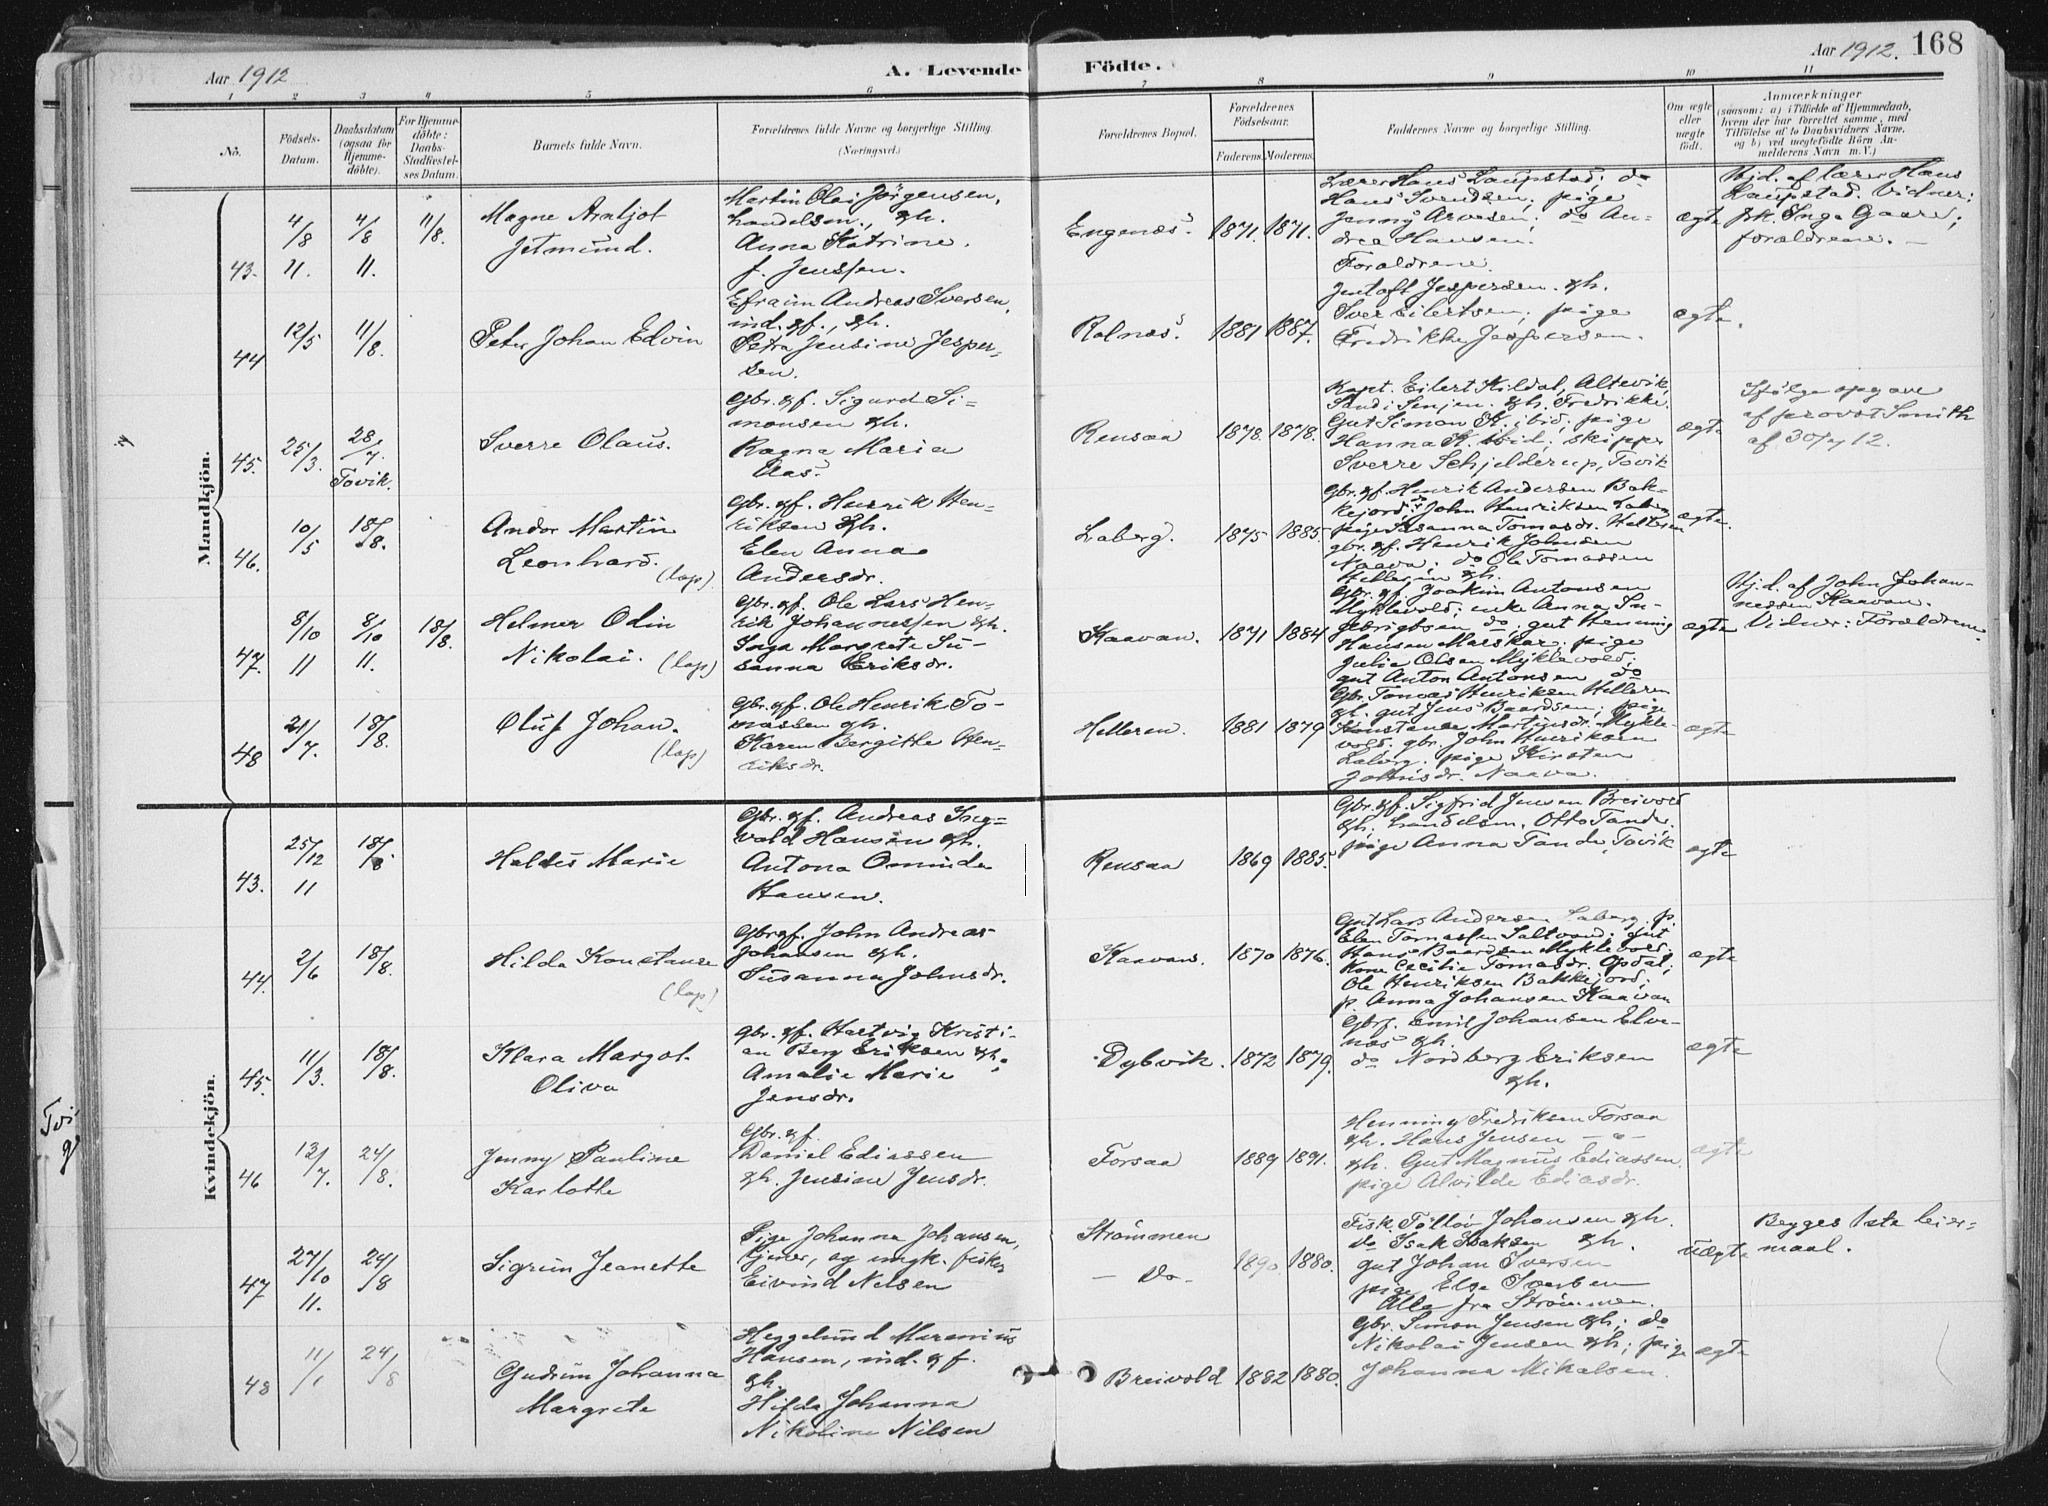 Aar 1912
A. Levende
Födte.
Aar 1912.
168
1 2 3 4 5 6 7 8 9 10 11
No.
Födsels-
Datum.
Daabsdatum
(ogsaa for
Hjemme-
döbte).
For Hjemme-
döbte:
Daabs-
Stadfæstel-
ses Datum.
Barnets fulde Navn.
Forældrenes fulde Navne og borgerlige Stilling.
(Næringsvei.)
Forældrenes Bopæl.
Forældrenes
Födselsaar.
Faderens.
Moderens.
Faddernes Navne og borgerlige Stilling.
Om ægte
eller
uægte
født.
Anmærkninger
(saasom: a) i Tilfælde af Hjemmedaab,
hvem der har forrettet samme, med
Tilföielse af to Daabsvidners Navne.
og b) ved uægtefödte Börn An-
melderens Navn m. V.)
Mandkjön.
43.
4/8
11.
4/8
11.
11/8.
Magne Arnljot
Jetmund.
Martin Olai Jörgensen,
handelsm., gh.
Anna Katrine
f. Jenssen.
Engenæs.
1871.
1871.
Lærer Hans Laupstad; do
Hans Svendsen; pige
Jenny Arvesen; do An-
drea Hansen.
Forældrene.
ægte
Hjd. af lærer Hans
Laupstad. Vidner:
frk. Inga Gaare,
forældrene.
44
12/5
11/8.
Peter Johan Edvin
Efraim Andreas Iversen,
ind. gf., gh.
Petra Jensine Jesper-
sen.
Rolnæs.
1881
1887.
Jentoft Jespersen. gh.
Iver Eilertsen; pige
Fredrikke Jespersen.
ægte.
45.
25/3.
28/7.
Tovik.
Sverre Olaus.
Gbr. gf. Sigurd Si-
monsen gh.
Ragna Maria
Aas.
Rensaa
1878.
1878.
Kapt. Eilert Kildal, Altevik,
Sand i Senjen. gh. Fredrikke.
Gut Simon K. ibid; pige
Hanna K. ibid; skipper
Sverre Schjelderup, Tovik
ægte
Ifölge opgave
af provst Smith
af 30/7 12.
46.
10/5
18/8.
Andor Martin
Leonhard.
(lap).
Gbr. gf. Henrik Hen-
riksen gh.
Elen Anna
Andersdr.
Laberg.
1875
1885.
Gbr. gf. Henrik Andersen Bak-
kejord, do John Henriksen Laberg
pige Susanna Tomasdr. Helleren
gbr. gf. Henrik Johnsen
Naava; do Ole Tomassen
Helleren gh.
ægte.
47.
8/10
11
8/10
11.
18/8.
Helmer Odin
Nikolai.
(lap)
Gbr. gf. Ole Lars Hen-
rik Johannessen gh.
Inga Margrete Su-
sanna Eriksdr.
Kaavan.
1871
1884
Gbr. gf. Joakim Antonsen
Myklevold; enke Anna In-
gebrigtsen do; gut Henning
Hansen Maiskar; pige
Julie Olsen Myklevold;
gut Anton Antonsen do
ægte
Hjd. af John Johan-
nessen Kaavan.
Vidner: Forældrene
48
21/7.
18/8.
Oluf Johan.
(lap)
Gbr. gf. Ole Henrik To-
massen gh.
Karen Bergitte Hen-
riksdr.
Helleren.
1881
1879
Gbr. Tomas Henriksen Helleren
gh. gut Jens Baardsen; pige
Konstanse Martinsdr. Mykle-
vold. gbr. John Henriksen
Laberg. pige Kirsten
Johnsdr. Naava.
ægte
Kvindekjön.
43.
25/12
11
18/8
Haldis Marie
Gbr. gf. Andreas Ing-
vald Hansen gh.
Antona Ominda
Hansen.
Rensaa
1869
1885.
Gbr. gf. Sigfrid Jensen Breivold
gh; handelsm. Otto Tande,
pige Anna Tande, Tovik
ægte
44.
2/6
18/8.
Hilda Konstanse
(lap)
Gbr gf. John Andreas
Johansen gh.
Susanna Johnsdr.
Kaavan.
1870
1876.
Gut Lars Andersen Laberg. p.
Elen Tomassen Saltvand; gut
Hans Baardsen Myklevold;
Kone Cecilie Tomasdr. Opdal;
Ole Henriksen Bakkejord;
p. Anna Johansen Kaavan
ægte
45.
11/3.
18/8.
Klara Margot
Oliva
Gbr. gf. Hartvig Kristi-
an Berg Eriksen gh.
Amalie Marie
Jensdr.
Dybvik.
1872
1879.
Gbrf. Emil Johansen Elve-
næs gh.
do Nordberg Eriksen
gh.
ægte
46
13/7.
24/8.
Jenny Pauline
Karlotte
Gbr. gf.
Daniel Ediassen
gh. Jensine Jensdr.
Forsaa
1889
1891.
Henning Fredriksen Forsaa
gh. Hans Jensen —"—
gh. Gut Magnus Ediassen.
pige Alvilde Ediasdr.
ægte
47
27/10
11.
24/8
Sigrun Jeanette
Pige Johanna Johansen,
tjener, og ungk. fisker
Eivind Nilsen
Strømmen
— Do —
1890.
1880.
Fisk. Tollöv Johansen gh.
do Isak Isaksen gh.
gut Johan Iversen
pige Else Iversen
Alle fra Strømmen.
Uægte
Begges 1ste leier-
maal.
48
11/1
24/8
Gudrun Johanna
Margrete
Heggelund Marenius
Hansen, ind. gf.
gh.
Hilda Johanna
Nikoline Nilsen
Breivold
1882
1880.
Gbr. Simon Jensen gh; do
Nikolai Jensen gh; pige
Johanna Mikalsen.
ægte